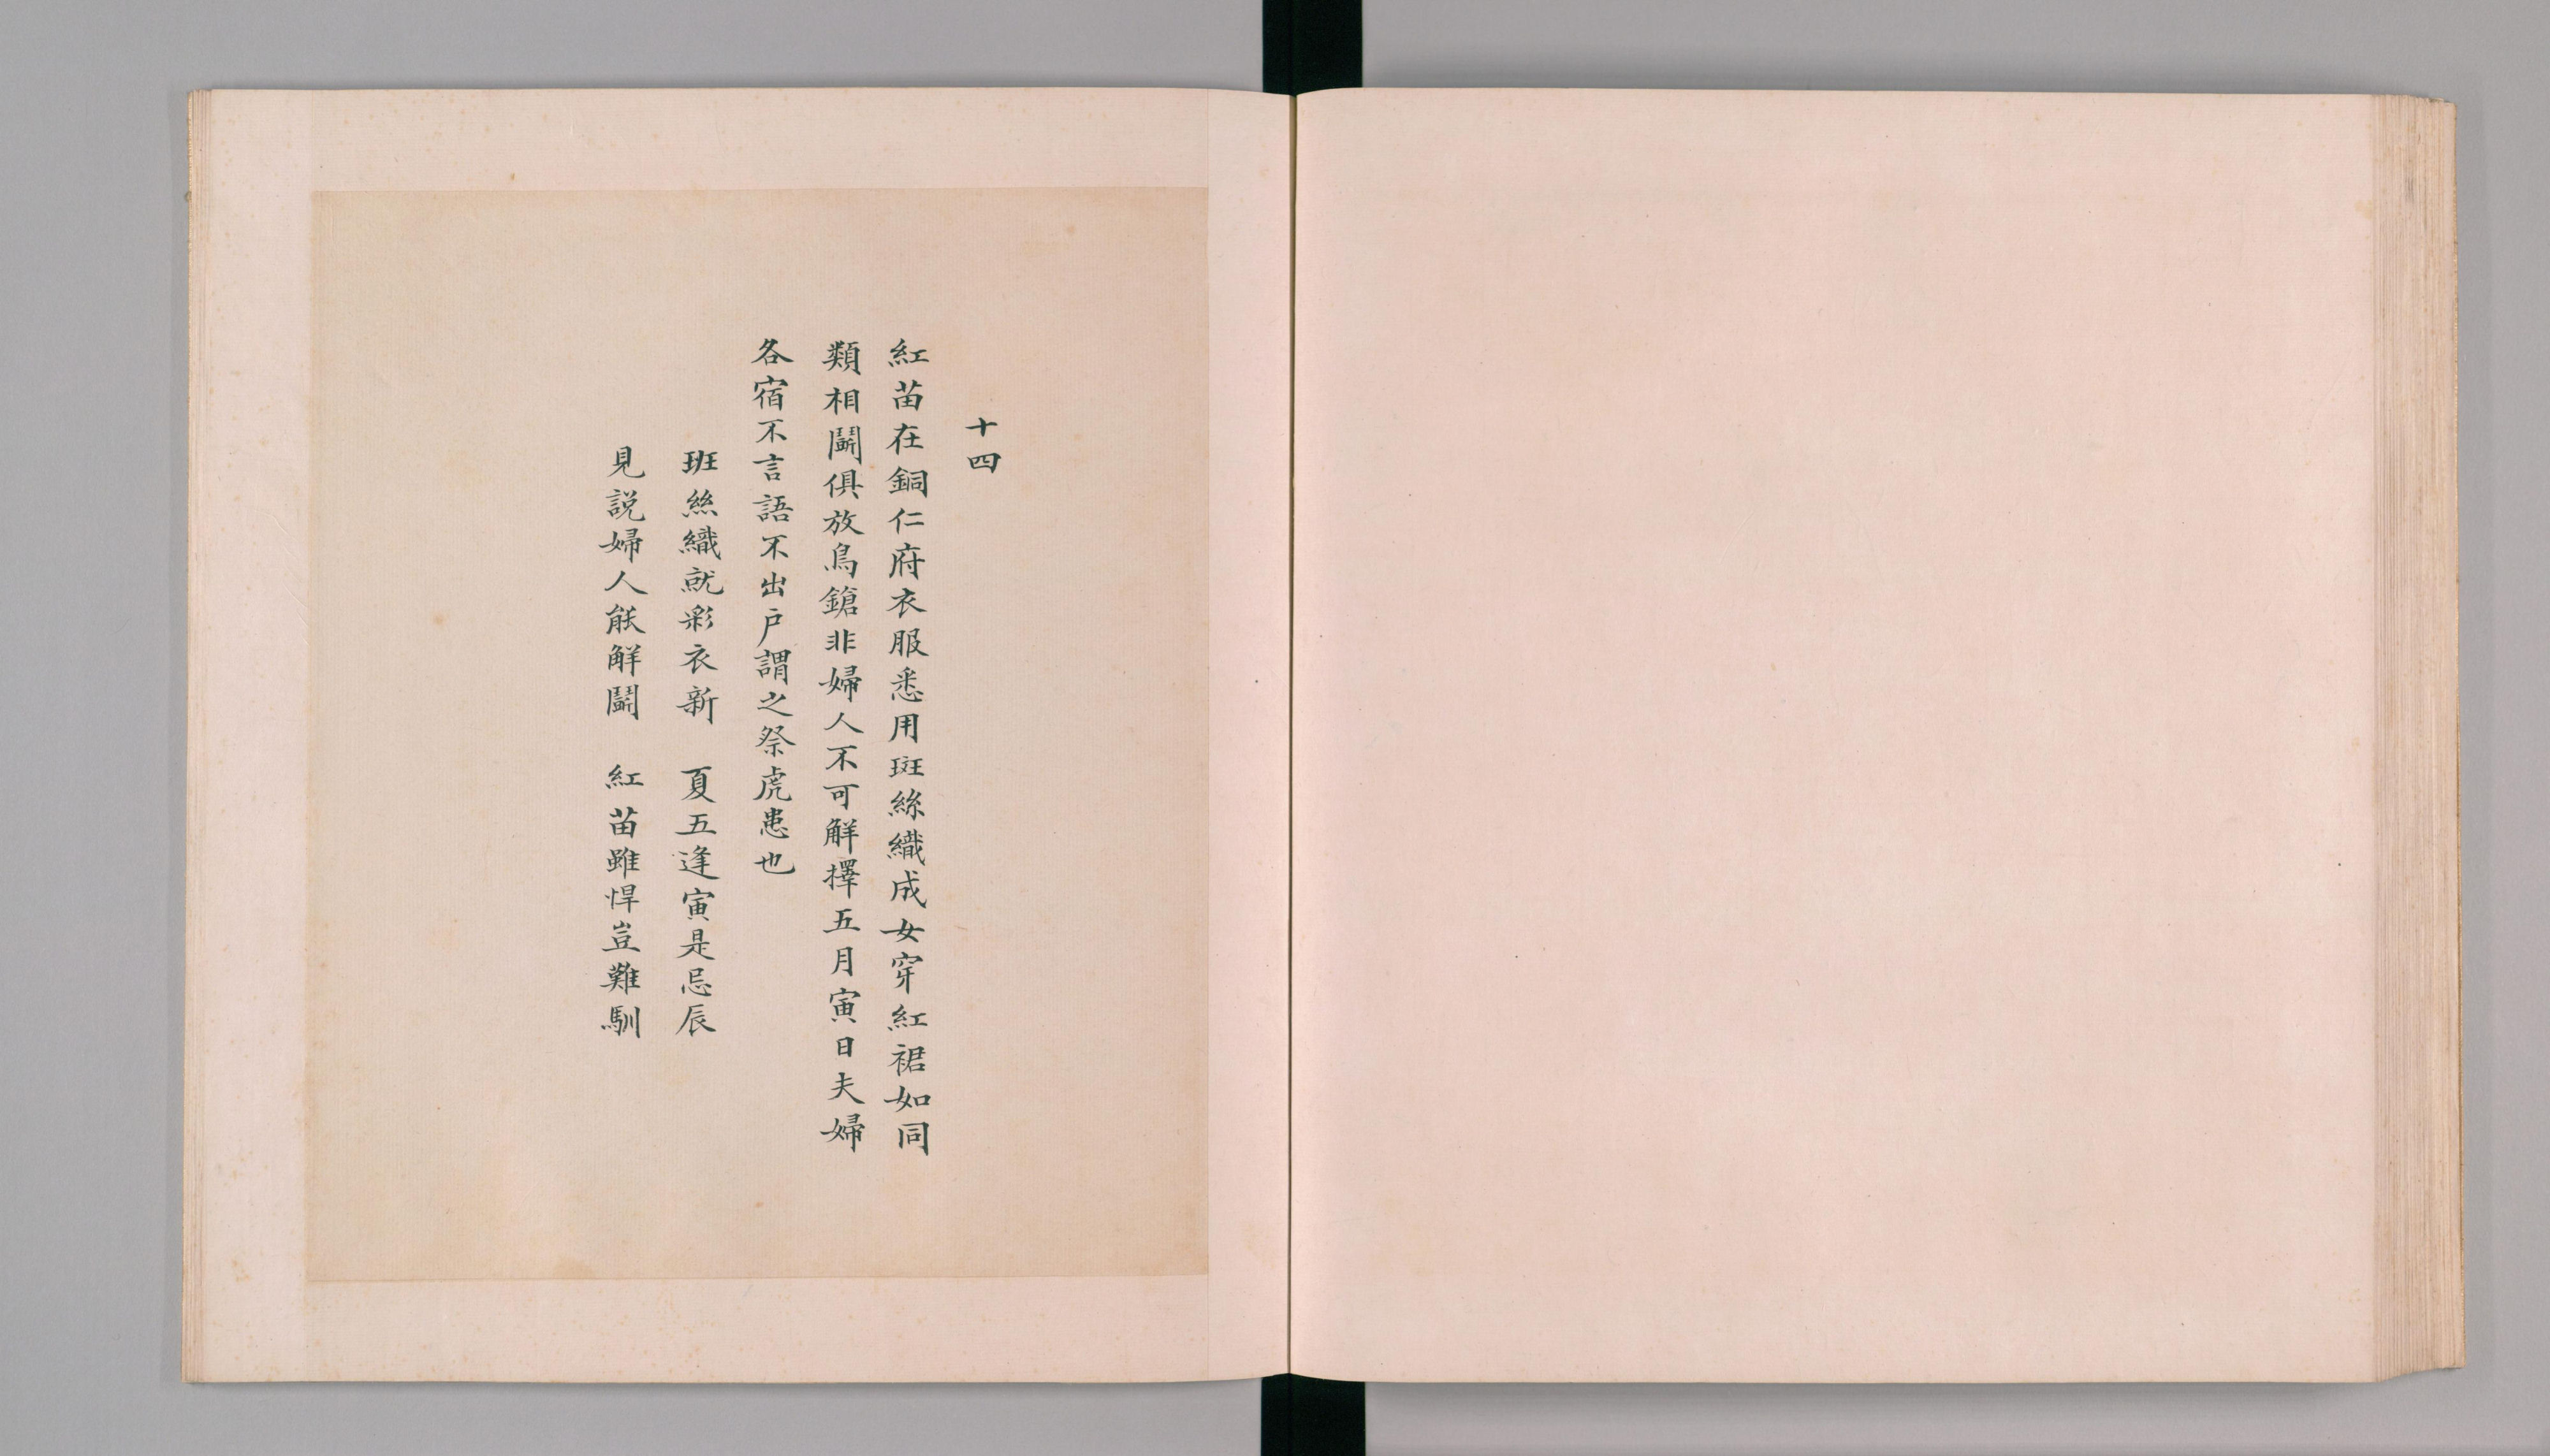 十四
紅苗在銅仁府衣服悉用斑絲織成女穿紅裙如同
類相鬭俱放鳥鎗非婦人不可解擇五月寅日夫婦
各宿不言語不出戶謂之祭虎患也
班絲織就彩衣新　夏五逢寅是忌辰
見說婦人能解鬭　紅苗雖悍豈難馴